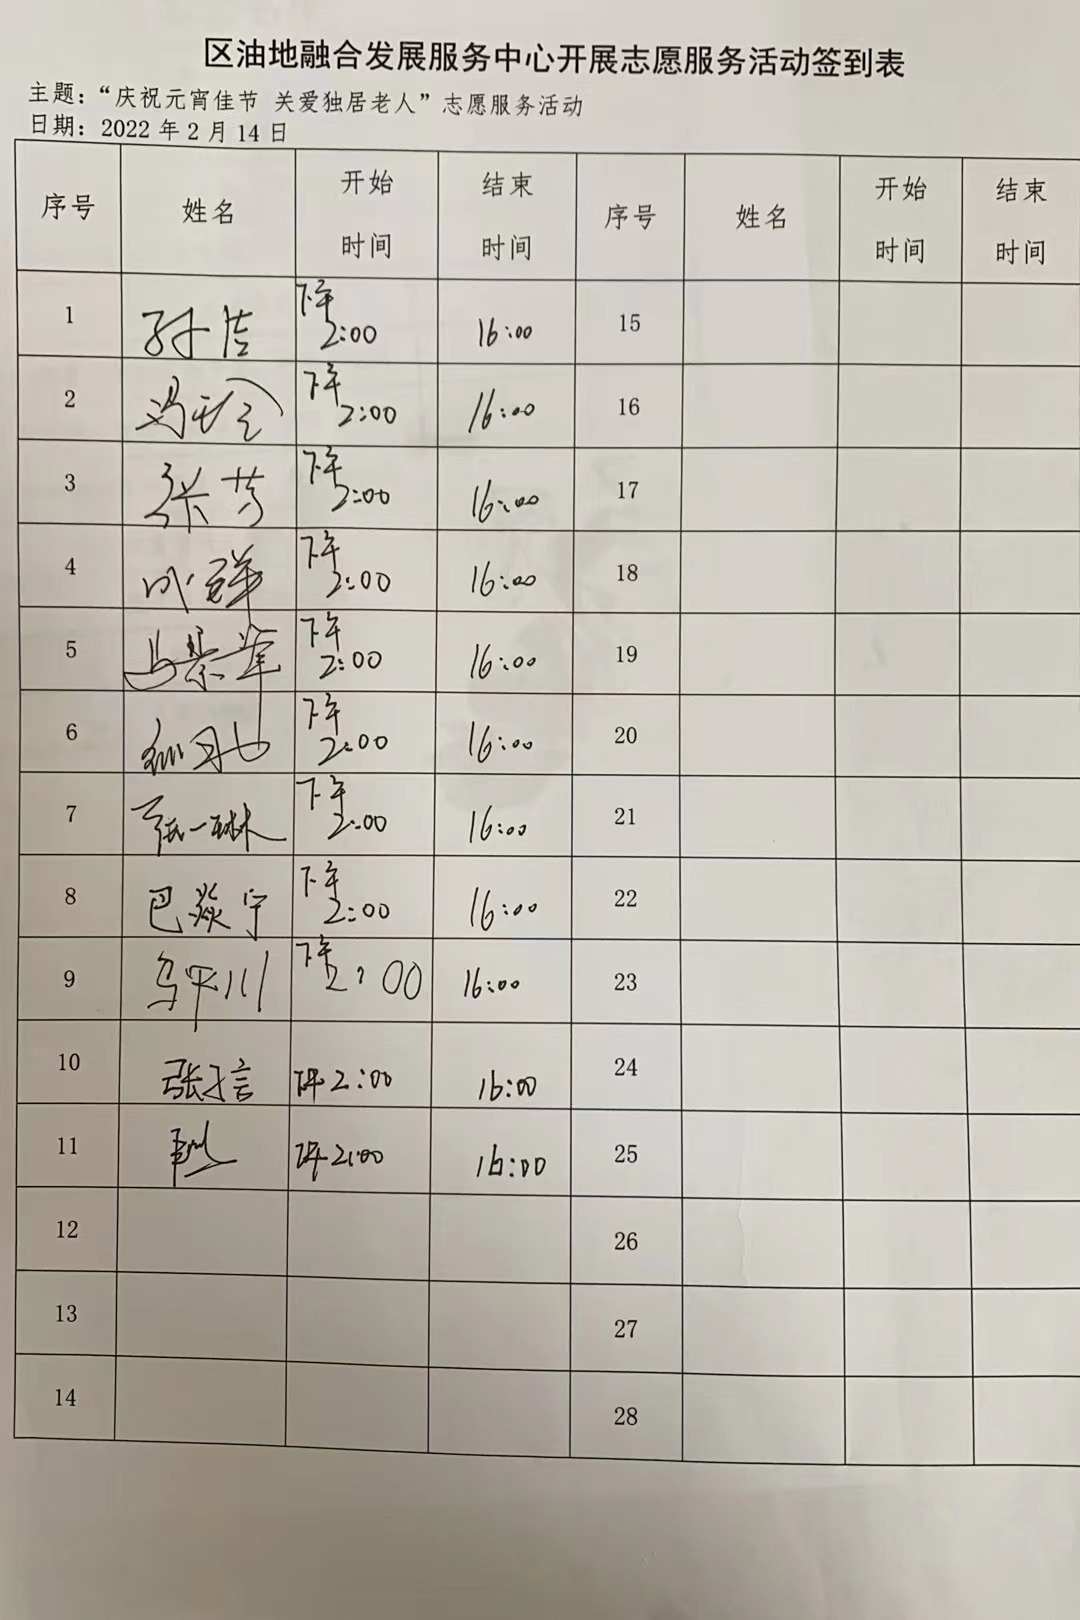 区油地融合发展服务中心开展志愿服务活动签到表
主题：“庆祝元宵佳节 关爱独居老人”志愿服务活动
日期：2022 年 2 月 14 日
序号 姓名 开始时间 结束时间 序号 姓名 开始时间 结束时间
1 孙洁 下午2:00 16:00 15
2 下午2:00 16:00 16
3 张芳 下午2:00 16:00 17
4 下午2:00 16:00 18
5 下午2:00 16:00 19
6 下午2:00 16:00 20
7 张一琳 下午2:00 16:00 21
8 巴焱宁 下午2:00 16:00 22
9 乌平川 下午2:00 16:00 23
10 下午2:00 16:00 24
11 下午2:00 16:00 25
12 26
13 27
14 28